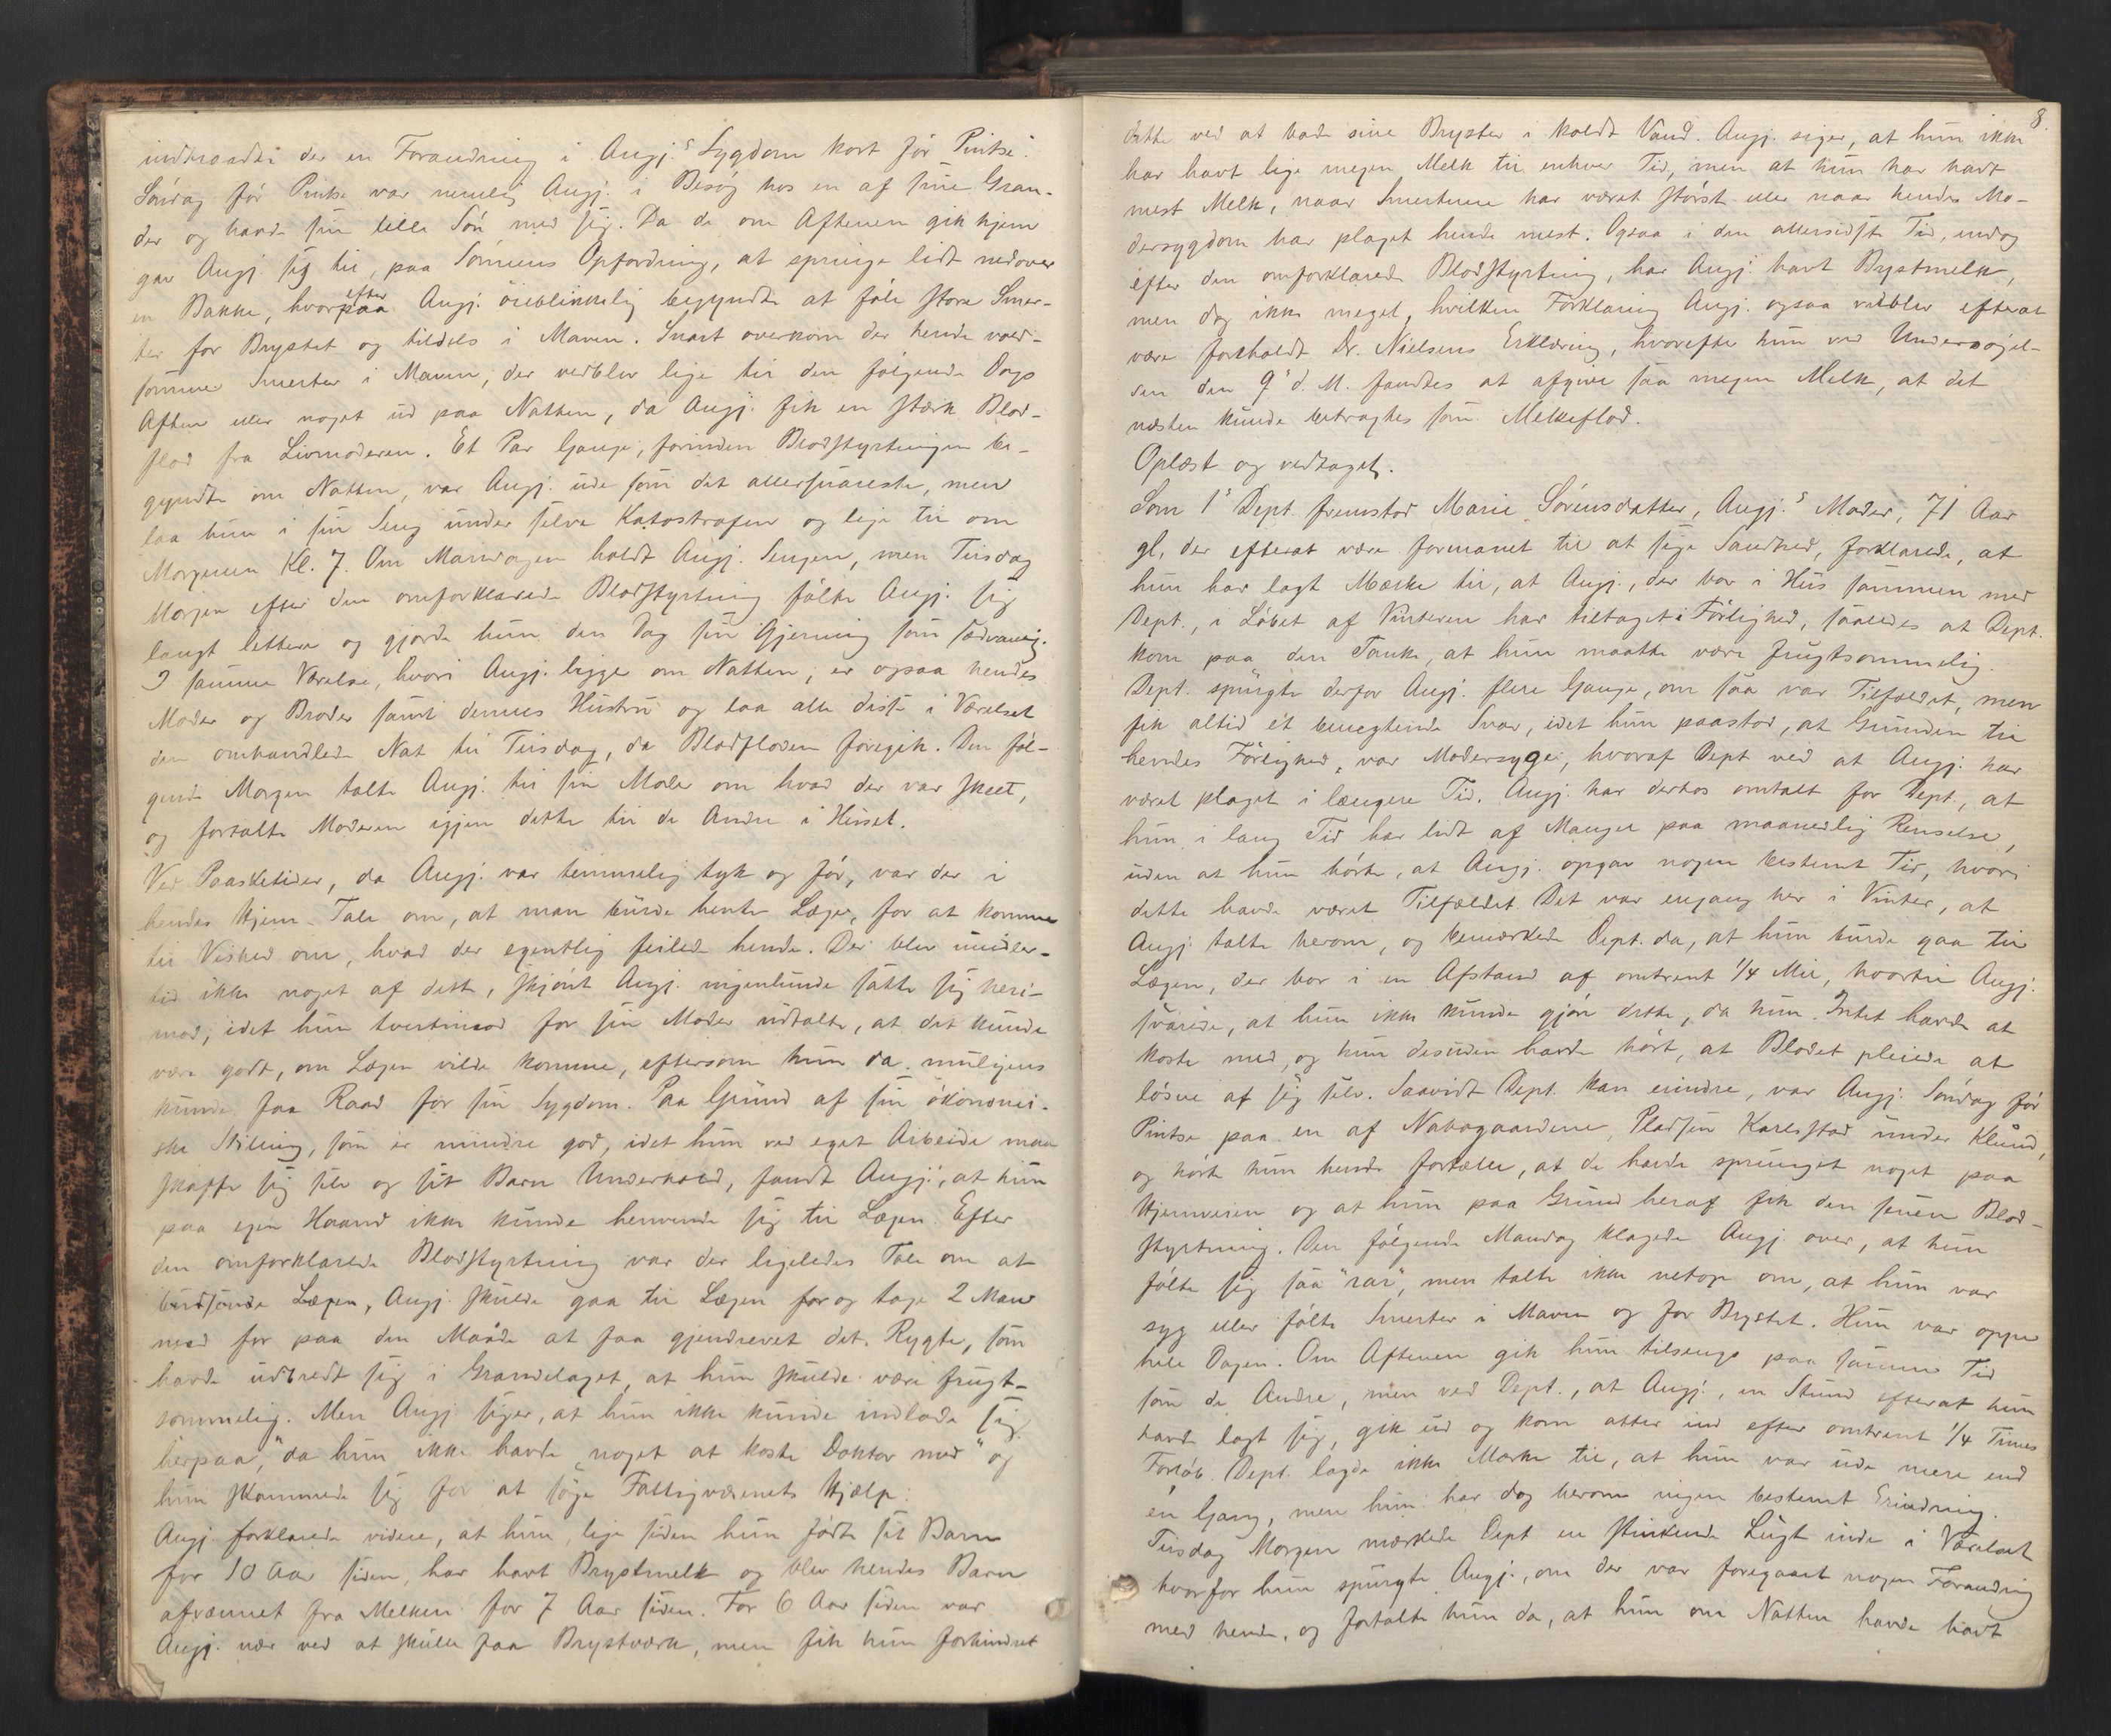 indtraadte der en Forandring i Angj.s Sygdom kort før Pintse.
Søndag før Pintse var nemlig Angj. i Besøg hos en af sine Gran-
der og havde sin lille Søn med sig. Da de om Aftenen gik hjem
gav Angj. sig til, paa Sønnens Opfordring, at springe lidt nedover
en Bakke, hvorpaa efter Angj. øieblikkelig begyndte at føle store Smer-
ter for Brystet og tildels i Maven. Snart overkom der hende vold-
somme Smerter i Maven, der vedblev lige til den følgende Dags
Aften eller noget ud paa Natten, da Angj. fik en stærk Blod-
flod fra Livmoderen. Et Par Gange, forinden Blodstyrtningen be-
gyndte om Natten, var Angj. ude som det allersnareste, men
laa hun i sin Seng under selve Katastrofen og lige til om
Morgenen Kl. 7. Om Mandagen holdt Angj. Sengen, men Tirsdag
Morgen efter den omforklarede Blodstyrtning følte Angj. sig
langt lettere og gjorde hun den Dag sin Gjerning som sædvanlig.
I samme Værelse, hvori Angj. ligger om Natten, er ogsaa hendes
Moder og Broder samt dennes Hustru og laa alle disse i Værelset
den omhandlede Nat til Tirsdag, da Blodfloden foregik. Den føl-
gende Morgen talte Angj. til sin Moder om hvad der var skeet,
og fortalte Moderen igjen dette til de Andre i Huset.
Ved Paasketider, da Angj. var temmelig tyk og før, var der i
hendes Hjem Tale om, at man burde hente Læge, for at komme
til Vished om, hvad der egentlig feilede hende. Der blev imidler-
tid ikke noget af dette, skjønt Angj. ingenlunde satte sig heri-
mod, idet hun tvertimod for sin Moder udtalte, at det kunde
være godt, om Lægen vilde komme, eftersom hun da muligens
kunde faa Raad for sin Sygdom. Paa Grund af sin økonomi-
ske Stilling, som er mindre god, idet hun ved eget Arbeide maa
skaffe sig selv og sit Barn Underhold, fandt Angj., at hun
paa egen Haand ikke kunde henvende sig til Lægen. Efter
den omforklarede Blodstyrtning var der ligeledes Tale om at
budsende Lægen, Angj. skulde gaa til Lægen for og tage 2 Mand
med for paa den Maade at faa gjendrevet det Rygte, som
havde udbredt sig i Grandelaget, at hun skulde være frugt-
sommelig. Men Angj. siger, at hun ikke kunde indlade sig
herpaa, da hun ikke havde "noget at koste Doktor med" og
hun skammede sig for at søge Fattigvæsenets Hjælp.
Angj. forklarede videre, at hun, lige siden hun fødte sit Barn
for 10 Aar siden, har havt Brystmelk og blev hendes Barn
afvænnet fra Melken for 7 Aar siden. For 6 Aar siden var
Angj. nær ved at skulle faa Brystværk, men fik hun forhindret
8.
dette ved at bade sine Bryster i koldt Vand. Angj. siger, at hun ikke
har havt lige megen Melk til enhver Tid, men at hun har havt
mest Melk, naar Smerterne har været størst eller naar hendes Mo-
dersygdom har plaget hende mest. Ogsaa i den allersidste Tid, endog
efter den omforklarede Blodstyrtning, har Angj. havt Brystmelk,
men dog ikke meget, hvilken Forklaring Angj. ogsaa vedblev efterat
være foreholdt Dr. Nielsens Erklæring, hvorefter hun ved Undersøgel-
sen den 9de d. M. fandtes at afgive saa megen Melk, at det
næsten kunde betragtes som Melkeflod.
Oplæst og vedtaget.
Som 1ste Dept. fremstod Marie Sørensdatter, Angj.s Moder, 71 Aar
gl, der efterat være formanet til at sige Sandhed, forklarede, at
hun har lagt Mærke til, at Angj., der bor i Hus sammen med
Dept., i Løbet af Vinteren har tiltaget i Førlighed, saaledes at Dept.
kom paa den Tanke, at hun maatte være frugtsommelig.
Dept. spurgte derfor Angj. flere Gange, om saa var Tilfældet, men
fik altid et benegtende Svar, idet hun paastod, at Grunden til
hendes Førlighed, var Modersyge, hvoraf Dept ved at Angj. har
været plaget i længere Tid. Angj. har derhos omtalt for Dept., at
hun i lang Tid har lidt af Mangel paa maanedlig Renselse,
uden at hun hørte, at Angj. opgav nogen bestemt Tid, hvori
dette havde været Tilfældet. Det var engang her i Vinter, at
Angj. talte herom, og bemærkede Dept. da, at hun burde gaa til
Lægen, der bor i en Afstand af omtrent 1/4 Mil, hvortil Angj.
svarede, at hun ikke kunde gjøre dette, da hun Intet havde at
koste med, og hun desuden havde hørt, at Blodet pleiede at
løsne af sig selv. Saavidt Dept. kan erindre, var Angj. Søndag før
Pintse paa en af Nabogaardene, Pladsen Karlsstad under Klund,
og hørte hun hende fortælle, at de havde sprunget noget paa
Hjemveien og at hun paa Grund heraf fik den senere Blod-
styrtning. Den følgende Mandag klagede Angj. over, at hun
følte sig saa "rar", men talte ikke netop om, at hun var
syg eller følte Smerter i Maven og for Brystet. Hun var oppe
hele Dagen. Om Aftenen gik hun tilsengs paa samme Tid
som de Andre, men ved Dept., at Angj., en Stund efterat hun
havde lagt sig, gik ud og kom atter ind efter omtrent 1/4 Times
Forløb. Dept. lagde ikke Mærke til, at hun var ude mere end
én Gang, men hun har dog herom ingen bestemt Erindring.
Tirsdag Morgen mærkede Dept en stinkende Lugt inde i Værelset
hvorfor hun spurgte Angj., om der var foregaaet nogen Forandring
med hende, og fortalte hun da, at hun om Natten havde havt